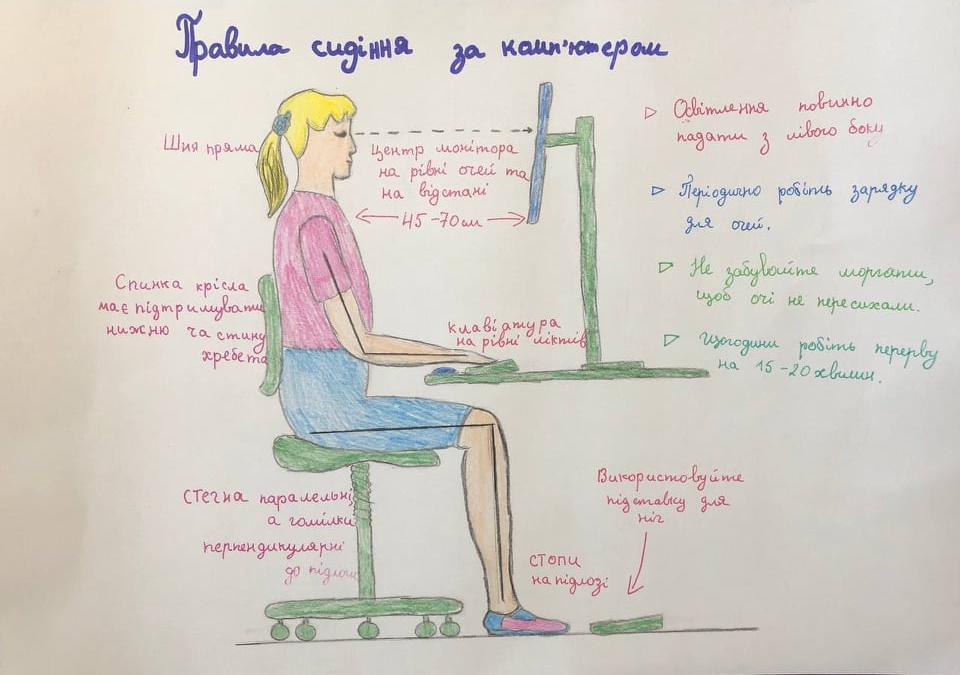 Правила сидіння за комп'ютером
Шия пряма
Центр монітора
на рівні очей та
на відстані
45-70см
Спинка крісла
має підтримувати
нижню частину
хребета
клавіатура
на рівні ліктів
Стегна паралельні,
а гомілки
перпендикулярні
до підлоги
стопи
на підлозі
Використовуйте
підставку для
ніг
Освітлення повинно
падати з лівого боку
Періодично робіть зарядку
для очей.
Не забувайте моргати,
щоб очі не пересихали.
Щогодини робіть перерву
на 15-20 хвилин.